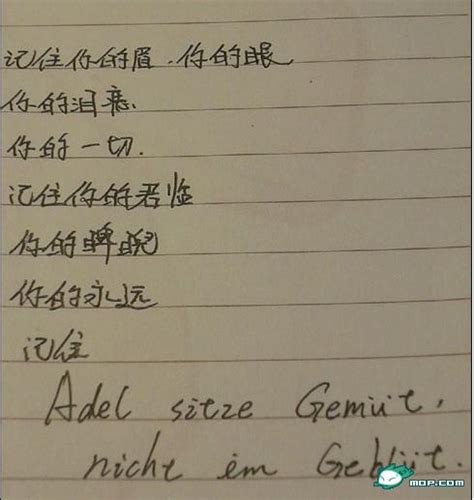 记住你的眉.你的眼
你的泪意.
你的一切.
记住你的君临
你的睥睨
你的永远
记住
Adel sitze Gemüt,
nicht im Geblüt.
MOP.COM